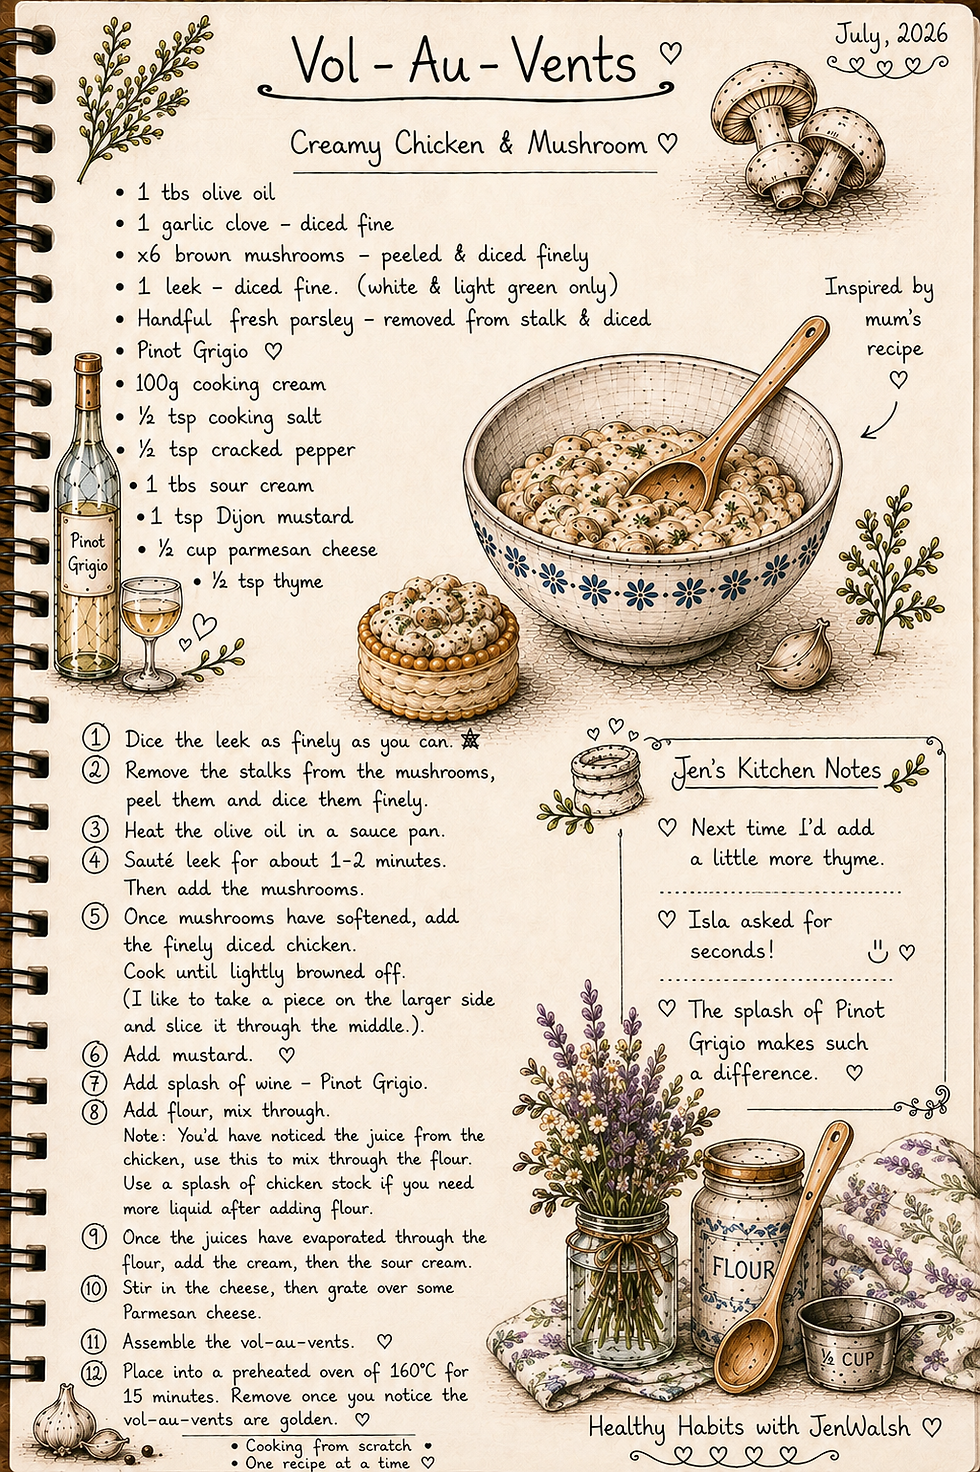 Vol - Au - Vents ♡
July, 2026
Creamy Chicken & Mushroom ♡
• 1 tbs olive oil
• 1 garlic clove – diced fine
• x6 brown mushrooms – peeled & diced finely
• 1 leek – diced fine. (white & light green only)
• Handful fresh parsley – removed from stalk & diced
• Pinot Grigio ♡
• 100g cooking cream
• ½ tsp cooking salt
• ½ tsp cracked pepper
• 1 tbs sour cream
• 1 tsp Dijon mustard
• ½ cup parmesan cheese
• ½ tsp thyme
Inspired by
mum's
recipe
♡
Pinot
Grigio
① Dice the leek as finely as you can. ★
② Remove the stalks from the mushrooms,
peel them and dice them finely.
③ Heat the olive oil in a sauce pan.
④ Sauté leek for about 1-2 minutes.
Then add the mushrooms.
⑤ Once mushrooms have softened, add
the finely diced chicken.
Cook until lightly browned off.
(I like to take a piece on the larger side
and slice it through the middle.).
⑥ Add mustard. ♡
⑦ Add splash of wine – Pinot Grigio.
⑧ Add flour, mix through.
Note: You'd have noticed the juice from the
chicken, use this to mix through the flour.
Use a splash of chicken stock if you need
more liquid after adding flour.
⑨ Once the juices have evaporated through the
flour, add the cream, then the sour cream.
⑩ Stir in the cheese, then grate over some
Parmesan cheese.
⑪ Assemble the vol-au-vents. ♡
⑫ Place into a preheated oven of 160°C for
15 minutes. Remove once you notice the
vol-au-vents are golden. ♡
• Cooking from scratch ♥
• One recipe at a time ♡
Jen's Kitchen Notes
♡ Next time I'd add
a little more thyme.
♡ Isla asked for
seconds! ♡
♡ The splash of Pinot
Grigio makes such
a difference. ♡
FLOUR
½ CUP
Healthy Habits with JenWalsh ♡